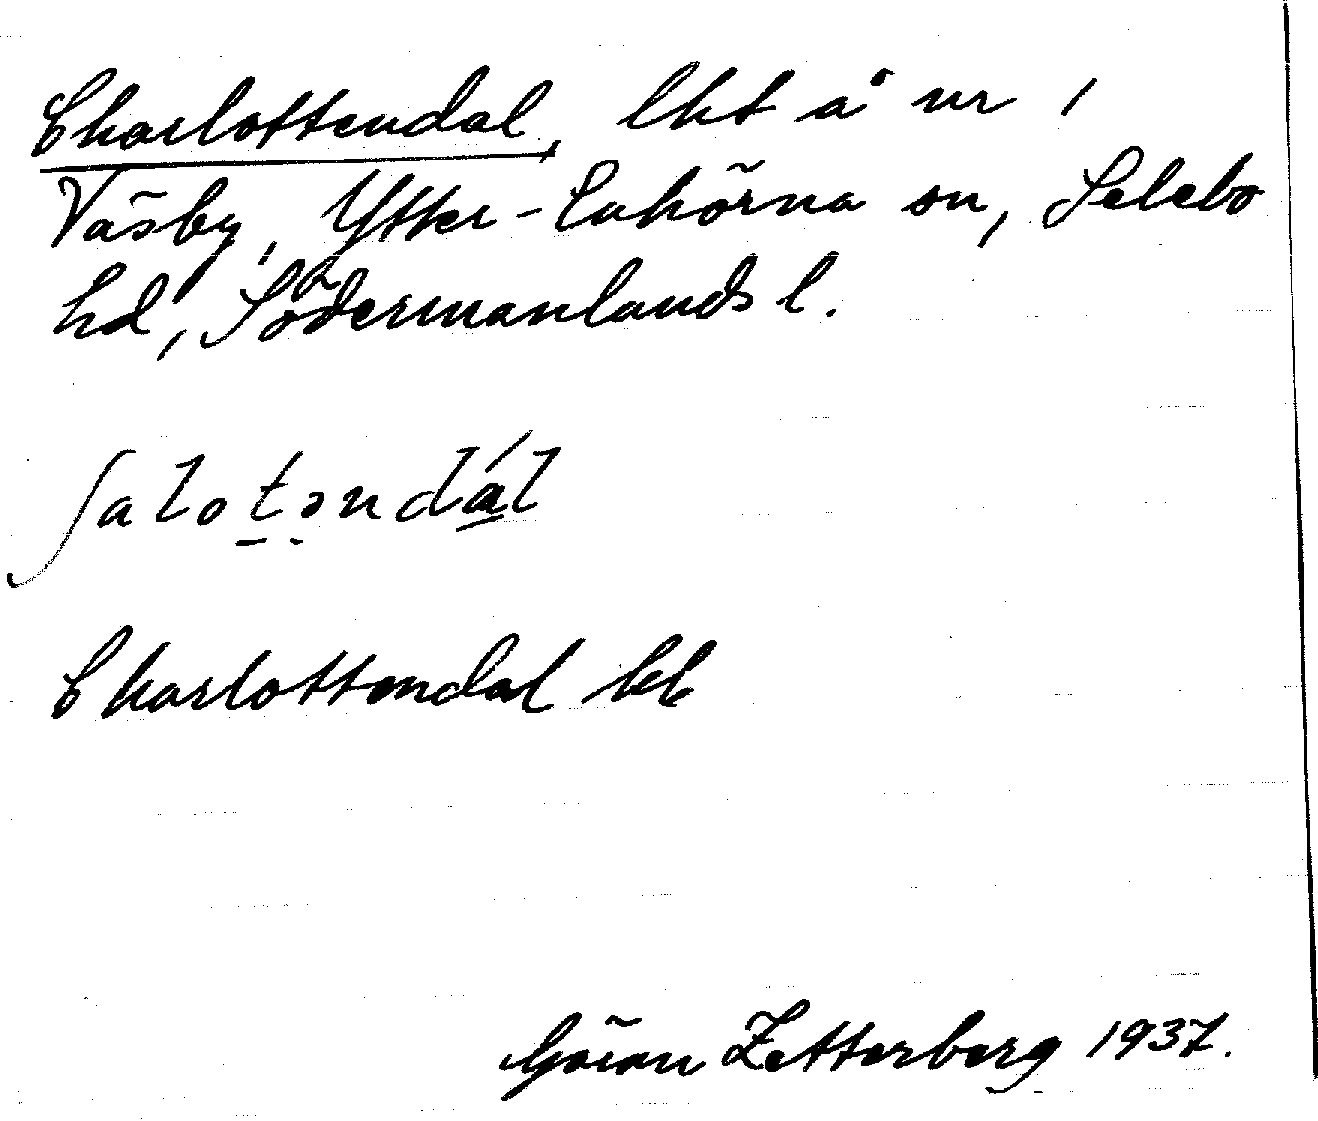 Charlottendal, lht å nr 1
Väsby, Ytter-Enhörna sn, Selebo
hd, Södermanlands l.
ʃalotəndál
Charlottendal kb
Göran Zetterberg 1937.